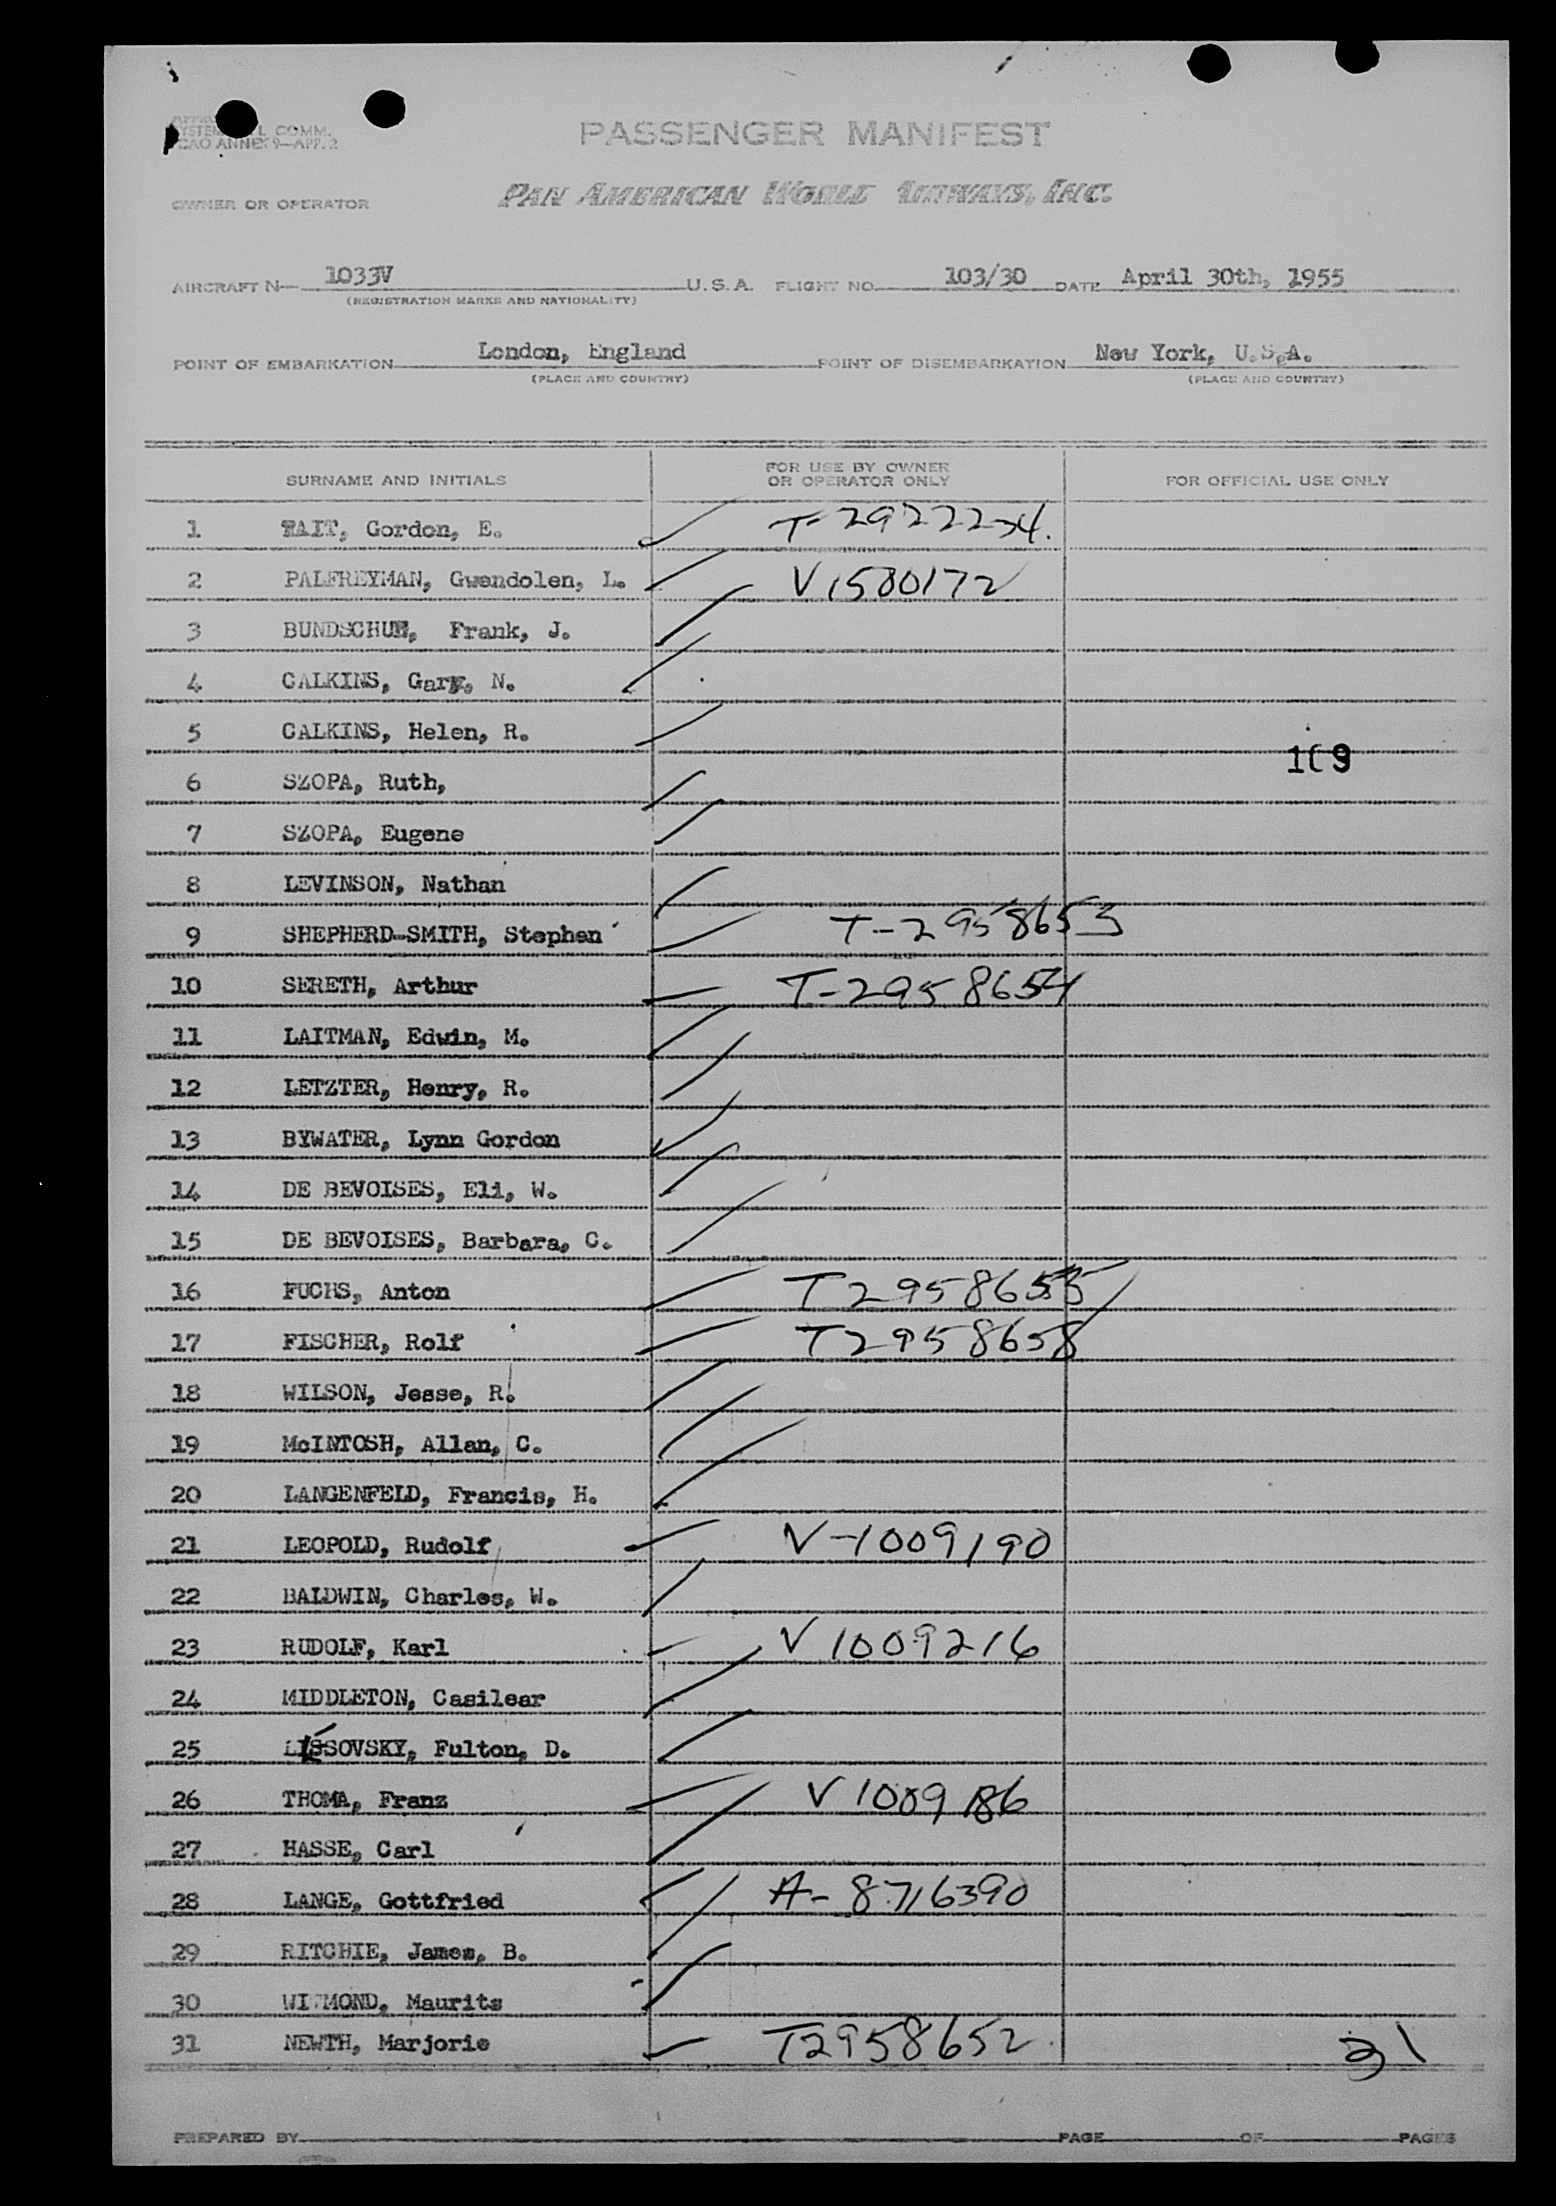 PASSENGER MANIFEST
L COMM.
ICAO ANNEX 9—APP. 2
PAN AMERICAN WORLD AIRWAYS, INC.
OWNER OR OPERATOR
AIRCRAFT N— 1033V U. S. A. FLIGHT NO. 103/30 DATE April 30th, 1955
(REGISTRATION MARKS AND NATIONALITY)
POINT OF EMBARKATION London, England POINT OF DISEMBARKATION New York, U.S.A.
(PLACE AND COUNTRY) (PLACE AND COUNTRY)
SURNAME AND INITIALS FOR USE BY OWNER OR OPERATOR ONLY FOR OFFICIAL USE ONLY
1 TAIT, Gordon, E. T-2922234.
2 PALFREYMAN, Gwendolen, L. V1580172
3 BUNDSCHUH, Frank, J.
4 CALKINS, Gary, N.
5 CALKINS, Helen, R.
6 SZOPA, Ruth,
7 SZOPA, Eugene
8 LEVINSON, Nathan
9 SHEPHERD-SMITH, Stephen T-2958653
10 SERETH, Arthur T-2958654
11 LAITMAN, Edwin, M.
12 LETZTER, Henry, R.
13 BYWATER, Lynn Gordon
14 DE BEVOISES, Eli, W.
15 DE BEVOISES, Barbara, C.
16 FUCHS, Anton
17 FISCHER, Rolf T2958658
18 WILSON, Jesse, R.
19 McINTOSH, Allan, C.
20 LANGENFELD, Francis, H.
21 LEOPOLD, Rudolf V-1009190
22 BALDWIN, Charles, W.
23 RUDOLF, Karl V1009216
24 MIDDLETON, Casilear
25 Fulton, D.
26 THOMA, Franz V1009186
27 HASSE, Carl
28 LANGE, Gottfried A-8716390
29 RITCHIE, James, B.
30 Maurits
31 NEWTH, Marjorie T2958652
31
PREPARED BY PAGE OF PAGES